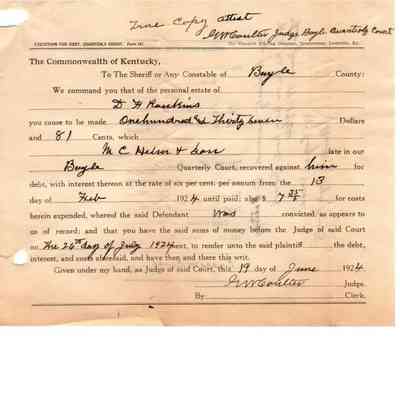 True Copy attest
GW Coulter Judge Boyle Quarterly Court
EXECUTION FOR DEBT, QUARTERLY COURT.
The Commonwealth of Kentucky,
To The Sheriff or Any Constable of Boyle County:
We command you that of the personal estate of
D H Rankins
you cause to be made One hundred & Thirty seven Dollars
and 81 Cents, which
M C Nelson & Son late in our
Boyle Quarterly Court, recovered against him for
debt, with interest thereon at the rate of six per cent. per annum from the 13
day of Feb 1924 until paid; also $ 7 for costs
herein expended, whereof the said Defendant was convicted as appears to
us of record; and that you have said sums of money before the Judge of said Court
on the 26th day of July 1924 next, to render unto the said plaintiff the debt,
interest, and costs aforesaid, and have then and there this writ.
Given under my hand, as Judge of said Court, this 19 day of June 1924
GW Coulter Judge.
By Clerk.